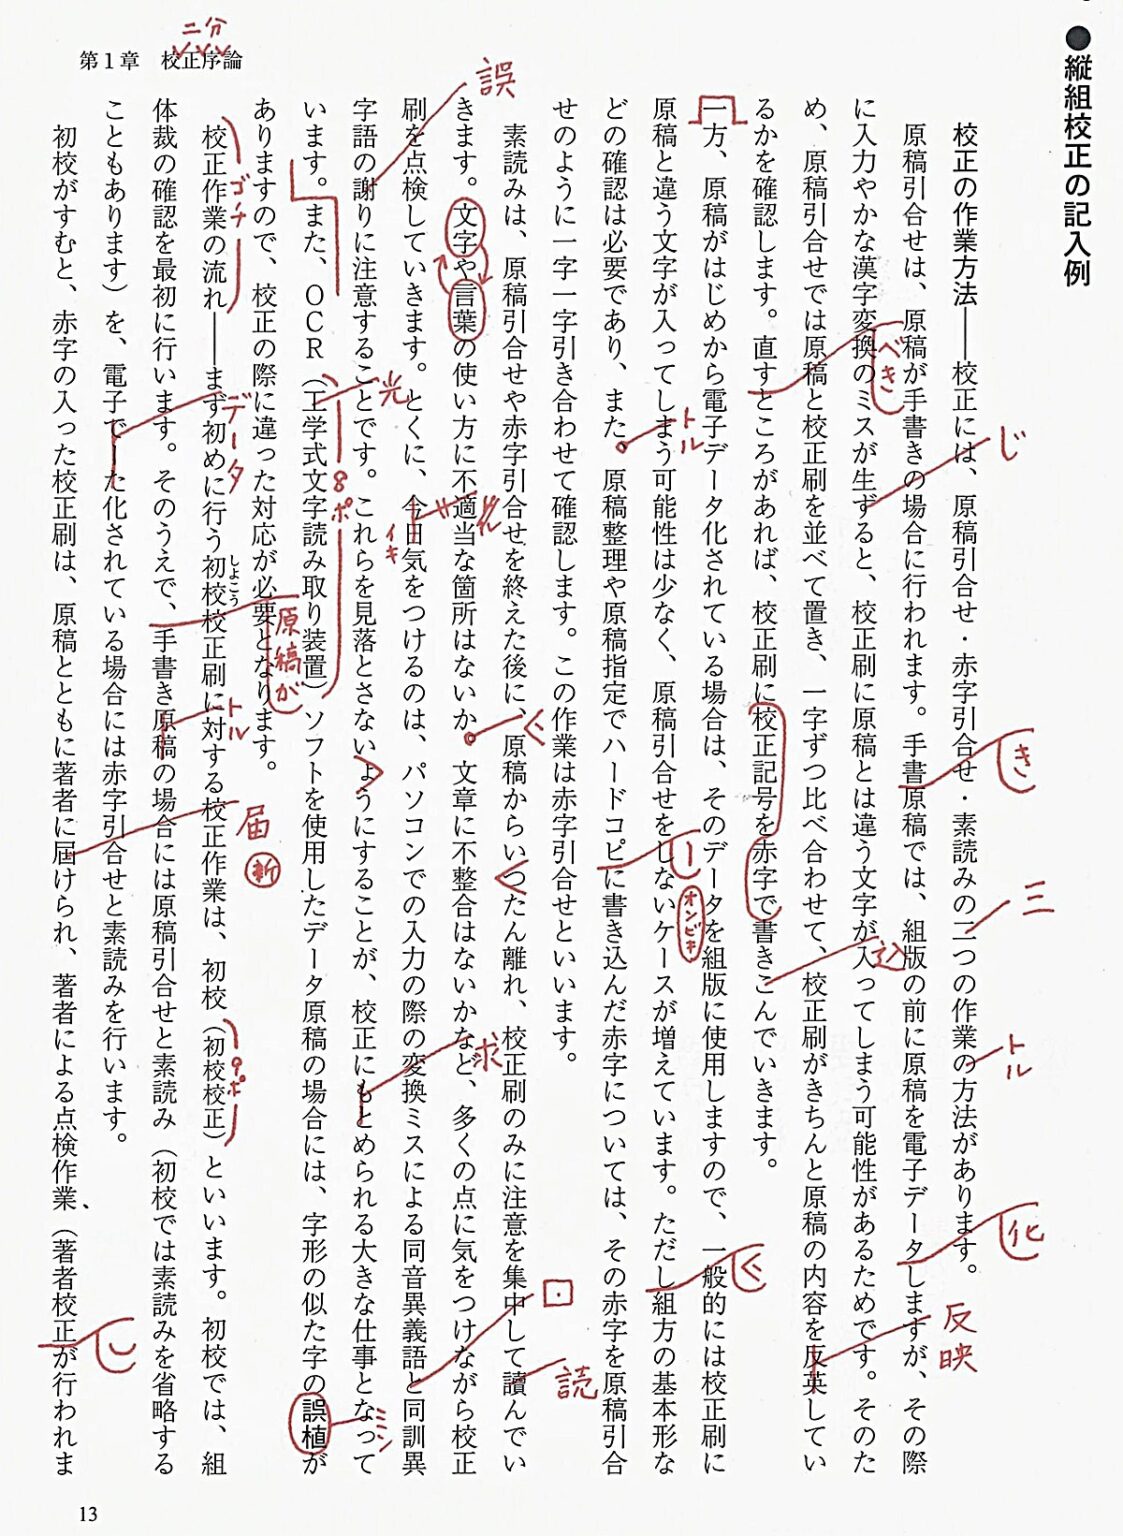 ●縦組校正の記入例
二分
第1章 校正序論
校正の作業方法――校正には、原稿引合せ・赤字引合せ・素読みの二つの作業の方法があります。
三
トル
原稿引合せは、原稿が手書きの場合に行われます。手書原稿では、組版の前に原稿を電子データしますが、その際
じ
き
化
反映
に入力やかな漢字変換のミスが生ずると、校正刷に原稿とは違う文字が入ってしまう可能性があるためです。そのた
べき
込
め、原稿引合せでは原稿と校正刷を並べて置き、一字ずつ比べ合わせて、校正刷がきちんと原稿の内容を反英してい
るかを確認します。直すところがあれば、校正刷に校正記号を赤字で書きこんでいきます。
一方、原稿がはじめから電子データ化されている場合は、そのデータを組版に使用しますので、一般的には校正刷に
トル
ー
オンビキ
原稿と違う文字が入ってしまう可能性は少なく、原稿引合せをしないケースが増えています。ただし組方の基本形な
どの確認は必要であり、また。原稿整理や原稿指定でハードコピに書き込んだ赤字については、その赤字を原稿引合
せのように一字一字引き合わせて確認します。この作業は赤字引合せといいます。
読
素読みは、原稿引合せや赤字引合せを終えた後に、原稿からいつたん離れ、校正刷のみに注意を集中して讀んでい
誤
求
きます。文字や言葉の使い方に不適当な箇所はないか。文章に不整合はないかなど、多くの点に気をつけながら校正
イキ
刷を点検していきます。とくに、今日気をつけるのは、パソコンでの入力の際の変換ミスによる同音異義語と同訓異
光
ミン
字語の謝りに注意することです。これらを見落とさないようにすることが、校正にもとめられる大きな仕事となって
8ポ
います。また、OCR（工学式文字読み取り装置）ソフトを使用したデータ原稿の場合には、字形の似た字の誤植が
原稿が
ありますので、校正の際に違った対応が必要となります。
ゴチ
データ
しよこう
トル
届
新
9ポ
校正作業の流れ――まず初めに行う初校校正刷に対する校正作業は、初校（初校校正）といいます。初校では、組
体裁の確認を最初に行います。そのうえで、手書き原稿の場合には原稿引合せと素読み（初校では素読みを省略する
こともあります）を、電子でーた化されている場合には赤字引合せと素読みを行います。
し
初校がすむと、赤字の入った校正刷は、原稿とともに著者に届けられ、著者による点検作業、（著者校正が行われま
13